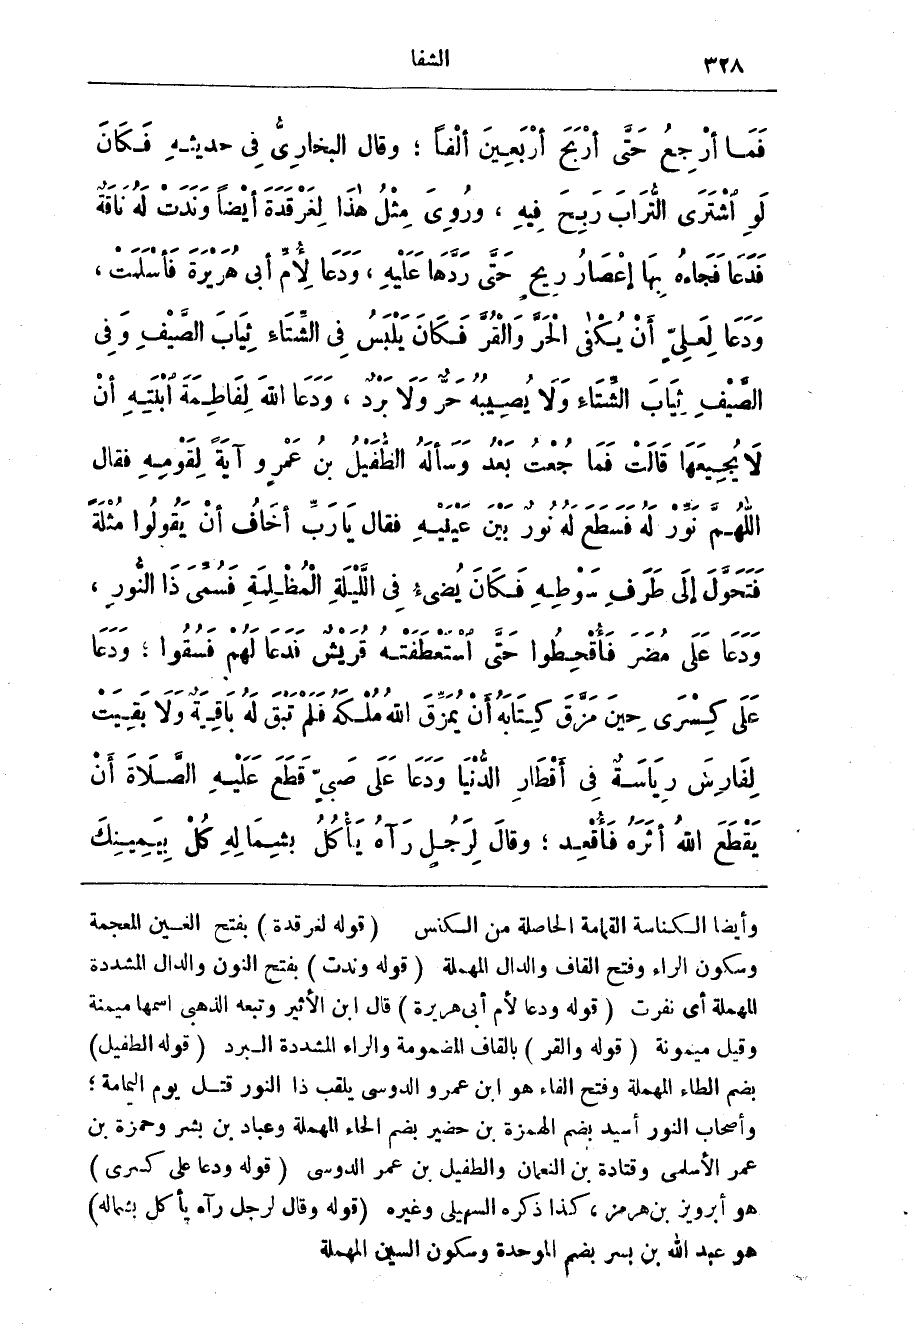 ٣٢٨
الشفا
فَمَا أَرْجِعُ حَتَّى أَرْبَحَ أَرْبَعِينَ أَلْفاً ؛ وقال البخارىُّ فى حديثِهِ فَكَانَ
لَوِ اشْتَرَى التُّرَابَ رَبِحَ فِيهِ ، ورُوِىَ مِثْلُ هَذَا لِغَرْقَدَةَ أَيْضاً وَنَدَّتْ لَهُ نَاقَةٌ
فَدَعَا فَجَاءَهُ بِهَا إِعْصَارُ رِيحٍ حَتَّى رَدَّهَا عَلَيْهِ ، وَدَعَا لِأُمِّ أبى هُرَيْرَةَ فَأَسْلَمَتْ ،
وَدَعَا لِعَلِىٍّ أَنْ يُكْفَى الْحَرَّ وَالْقُرَّ فَكَانَ يَلْبَسُ فِى الشِّتَاءِ ثِيَابَ الصَّيْفِ وَفِى
الصَّيْفِ ثِيَابَ الشِّتَاءِ وَلَا يُصِيبُهُ حَرٌّ وَلَا بَرْدٌ ، وَدَعَا اللهَ لِفَاطِمَةَ ابْنَتِهِ أَنْ
لَا يُجِيعَهَا قَالَتْ فَمَا جُعْتُ بَعْدُ وَسَأَلَهُ الطُّفَيْلُ بنُ عَمْرٍو آيَةً لِقَوْمِهِ فقال
اللهُمَّ نَوِّرْ لَهُ فَسَطَعَ لَهُ نُورٌ بَيْنَ عَيْنَيْهِ فقال يَارَبِّ أَخَافُ أَنْ يَقُولُوا مُثْلَةً
فَتَحَوَّلَ إِلَى طَرَفِ سَوْطِهِ فَكَانَ يُضِىءُ فِى اللَّيْلَةِ الْمُظْلِمَةِ فَسُمِّىَ ذَا النُّورِ ،
وَدَعَا عَلَى مُضَرَ فَأُقْحِطُوا حَتَّى اسْتَعْطَفَتْهُ قُرَيْشٌ فَدَعَا لَهُمْ فَسُقُوا ؛ وَدَعَا
عَلَى كِسْرَى حِينَ مَزَّقَ كِتَابَهُ أَنْ يُمَزِّقَ اللهُ مُلْكَهُ فَلَمْ تَبْقَ لَهُ بَاقِيَةٌ وَلَا بَقِيَتْ
لِفَارِسَ رِيَاسَةٌ فِى أَقْطَارِ الدُّنْيَا وَدَعَا عَلَى صَبِىٍّ قَطَعَ عَلَيْهِ الصَّلَاةَ أَنْ
يَقْطَعَ اللهُ أَثَرَهُ فَأُقْعِدَ ؛ وقالَ لِرَجُلٍ رَآهُ يَأْكُلُ بِشِمَالِهِ كُلْ بِيَمِينِكَ
وأيضا الكناسة القمامة الحاصلة من الكنس ( قوله لغرقدة ) بفتح الغين المعجمة
وسكون الراء وفتح القاف والدال المهملة ( قوله وندت ) بفتح النون والدال المشددة
المهملة أى نفرت ( قوله ودعا لأم أبى هريرة ) قال ابن الأثير وتبعه الذهبى اسمها ميمنة
وقيل ميمونة ( قوله والقر ) بالقاف المضمومة والراء المشددة البرد ( قوله الطفيل)
بضم الطاء المهملة وفتح الفاء هو ابن عمرو الدوسى يلقب ذا النور قتل يوم اليمامة ؛
وأصحاب النور أسيد بضم الهمزة بن حضير بضم الحاء المهملة وعباد بن بشر وحمزة بن
عمر الأسلمى وقتادة بن النعمان والطفيل بن عمر الدوسى ( قوله ودعا على كسرى )
هو أبرويز بن هرمز ، كذا ذكره السهيلى وغيره (قوله وقال لرجل رآه يأكل بشماله)
هو عبد الله بن بسر بضم الموحدة وسكون السين المهملة